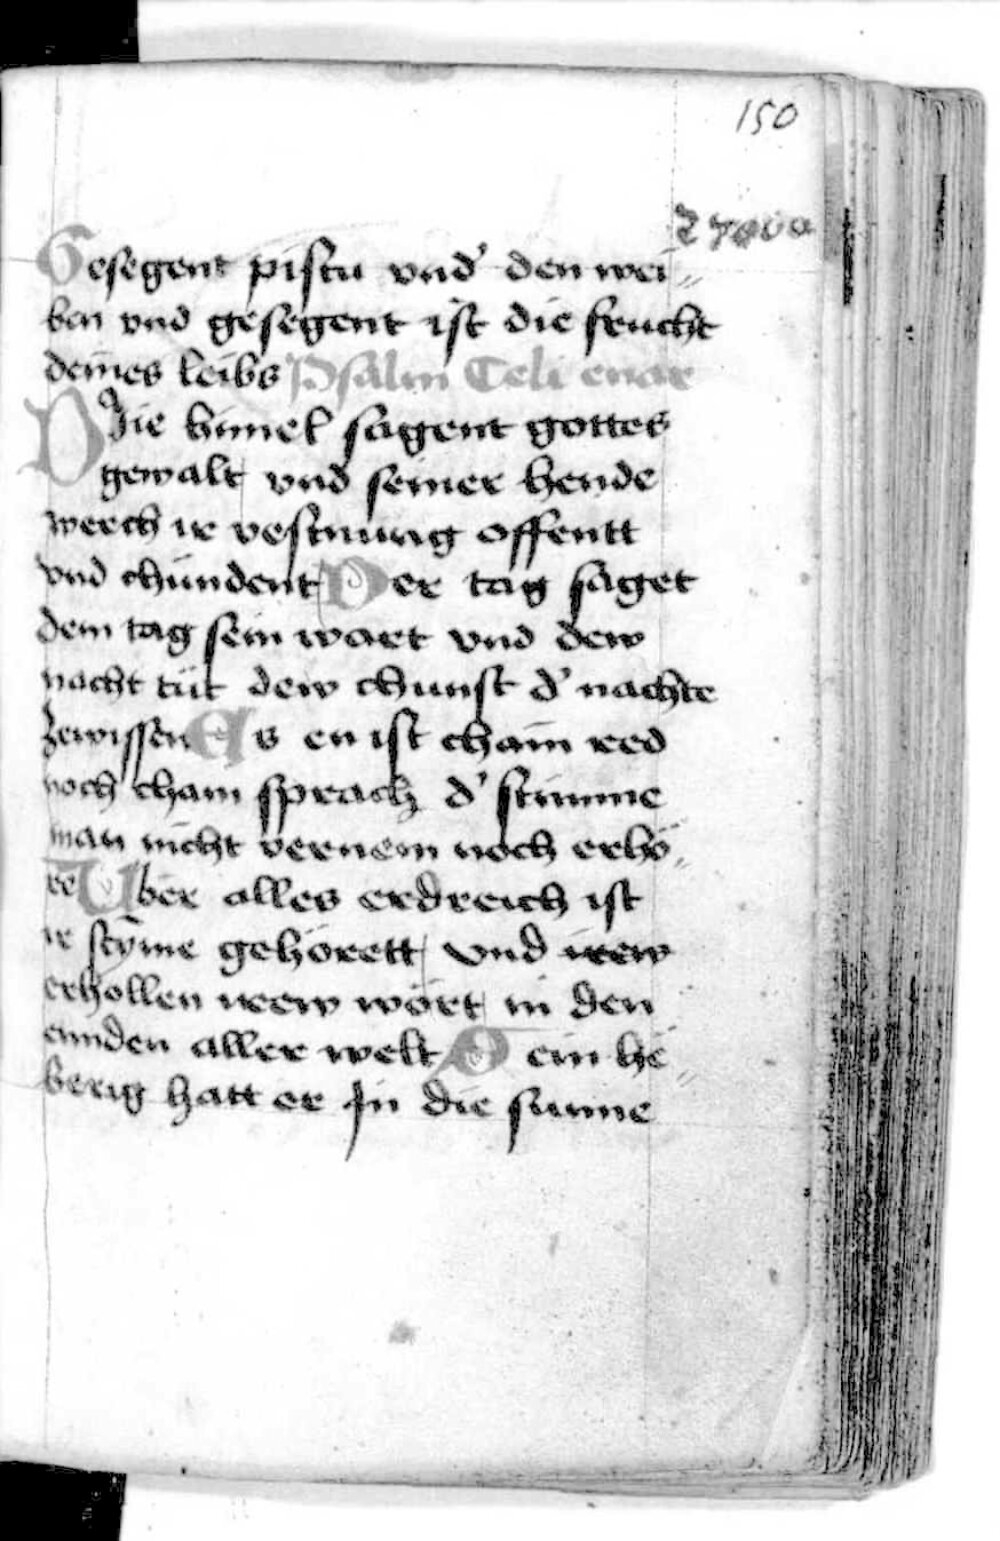 150
Gesegent pistu vnd' den wei〃
ben vnd gesegent ist die frucht
deines leibs Psalm Celi enar
Die himel sagent gottes
gewalt vnd seiner hende
werch ir vestnung offentt
vnd chundent Der tag saget
dem tag sein wort vnd dew
nacht tut dew chunst d' nachte
zewissen Es en ist chain red
noch chain sprach d' stimme
man nicht vernem noch erhö〃
re Uber alles erdreich ist
ir stȳme gehörett vnd
erhollen irew wört in den
ennden aller welt Sein he〃
berig hatt er jn die sunne